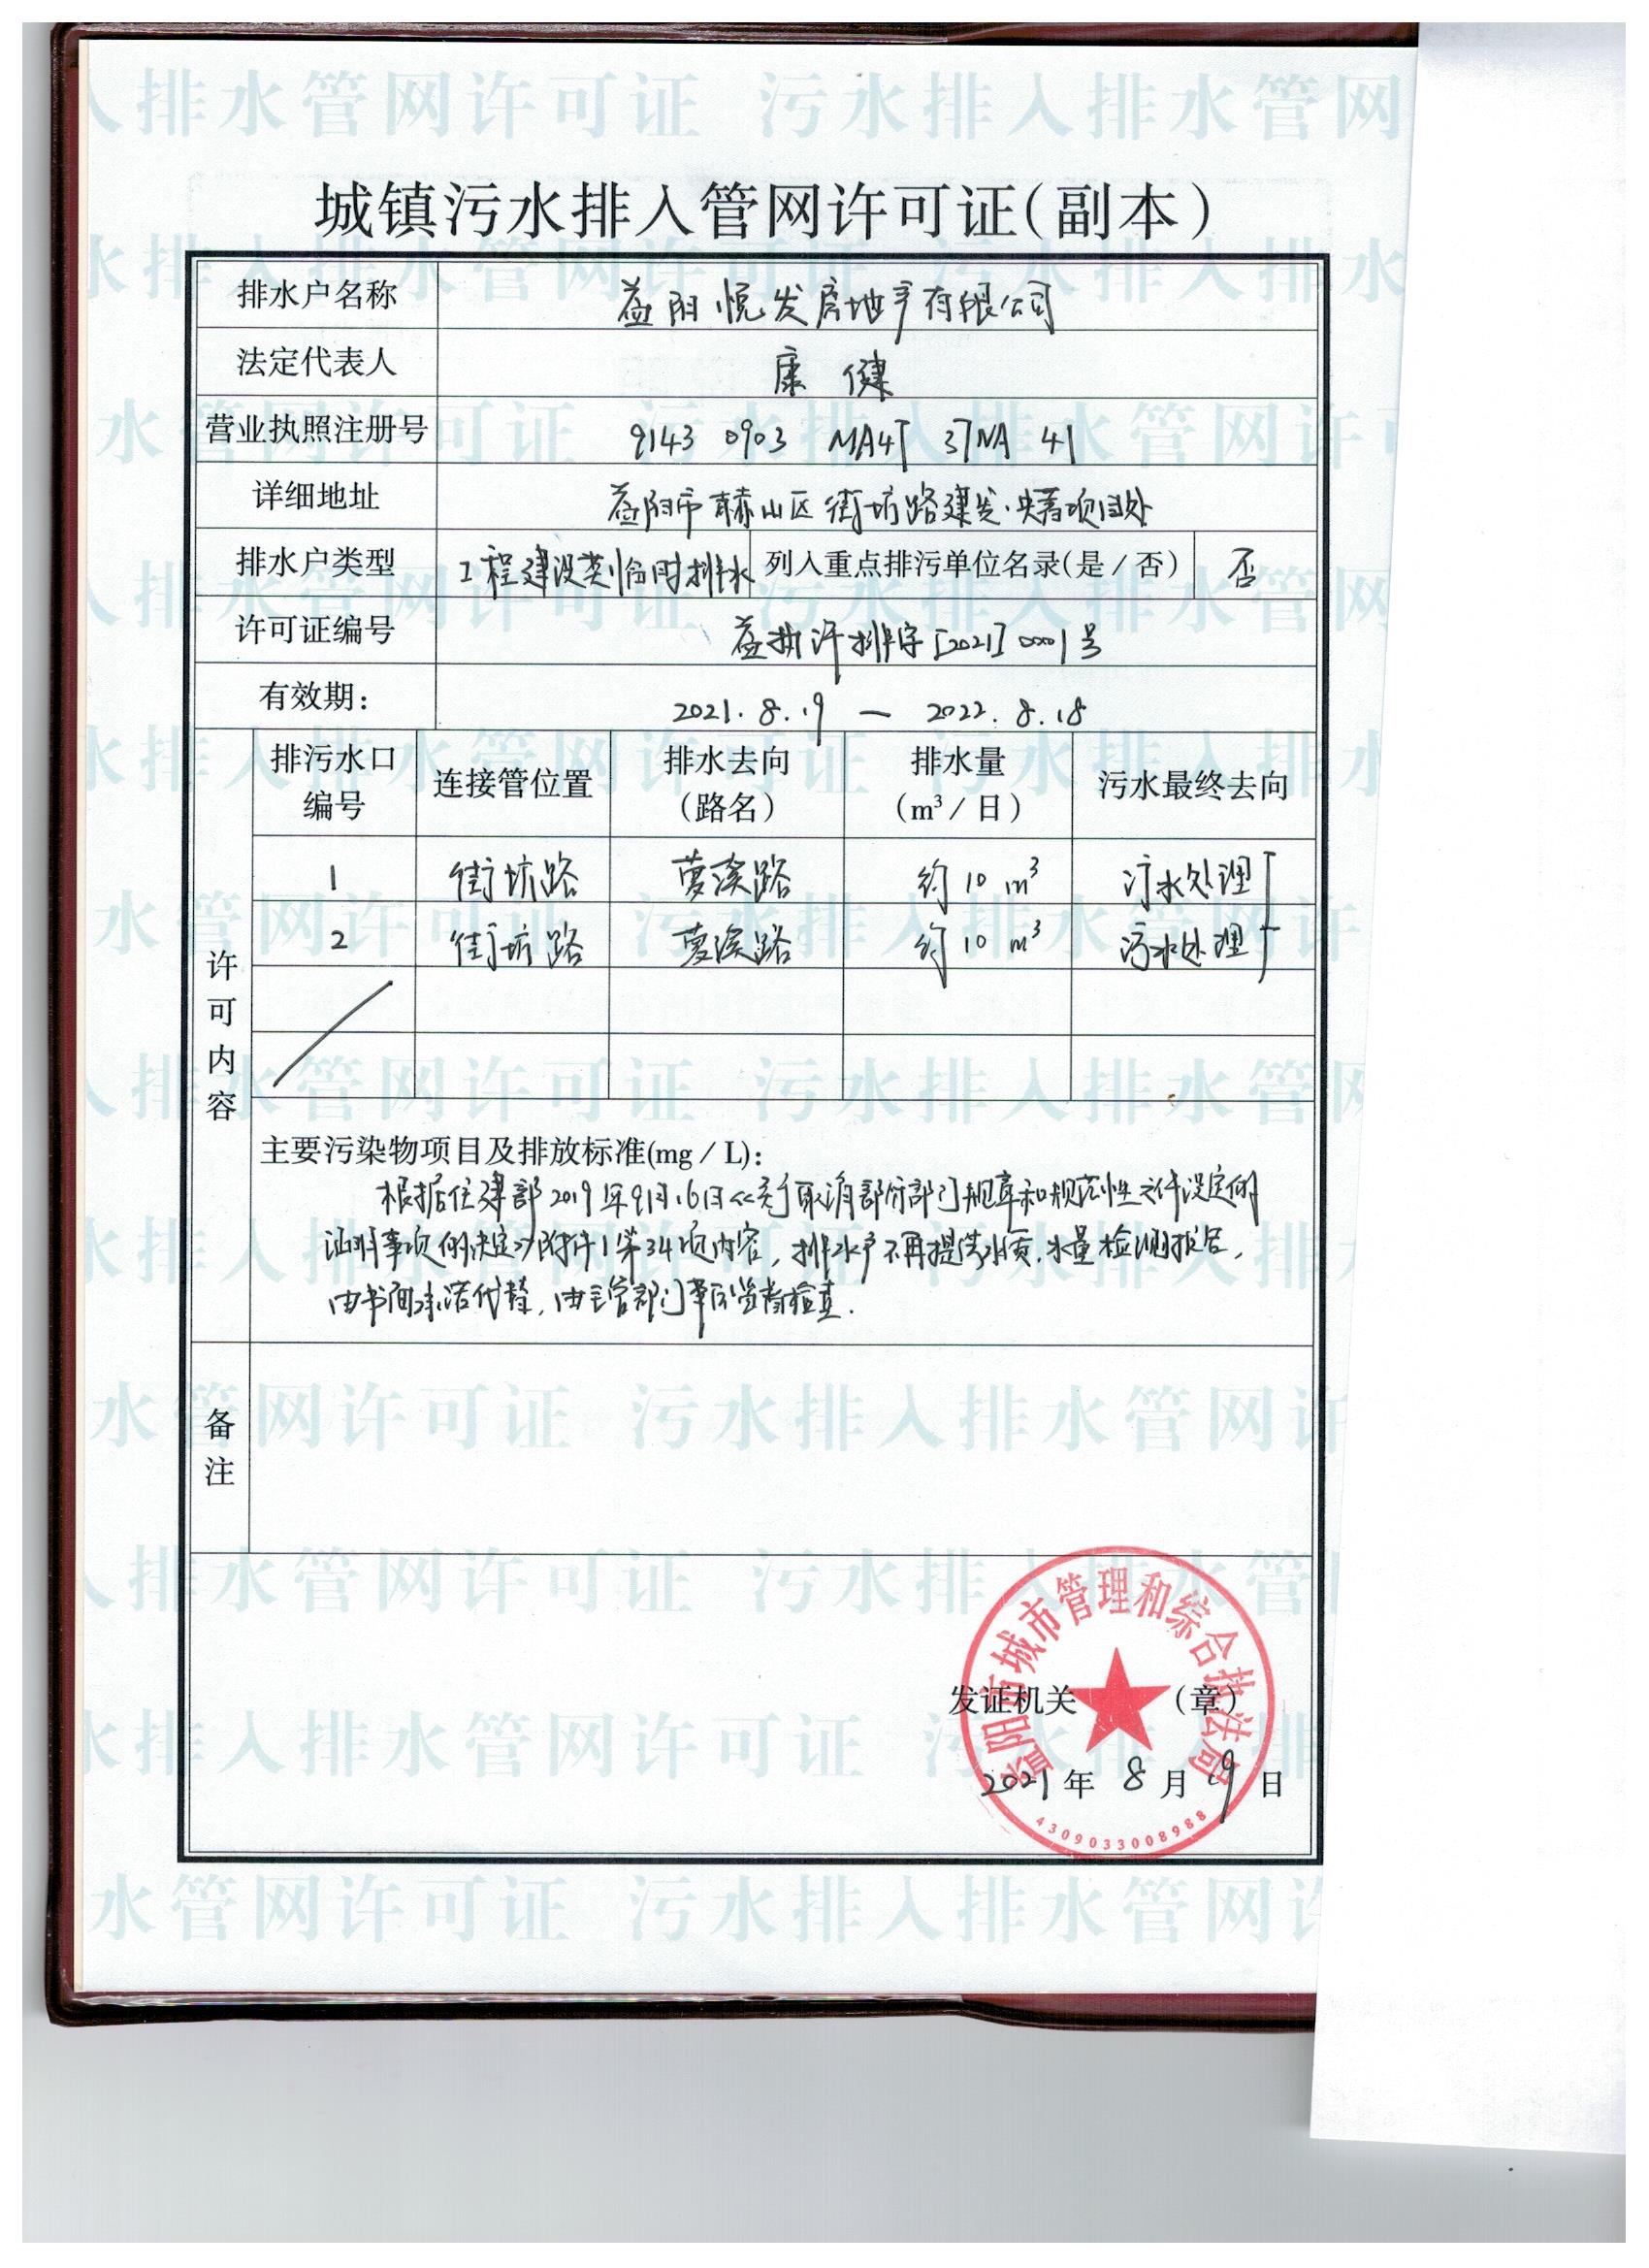 城镇污水排入管网许可证(副本)
排水户名称 益阳悦发房地产有限公司
法定代表人 康健
营业执照注册号 9143 0903 MA4T 37NA 41
详细地址 益阳市赫山区街坊路建发·央著项目处
排水户类型 工程建设类临时排水 列入重点排污单位名录(是/否) 否
许可证编号 益执许排字[2021]0001号
有效期: 2021.8.19 — 2022.8.18
许可内容
排污水口编号 连接管位置 排水去向(路名) 排水量(m³/日) 污水最终去向
1 街坊路 萝溪路 约10 m³ 污水处理厂
2 街坊路 萝溪路 约10 m³ 污水处理厂
主要污染物项目及排放标准(mg/L):
根据住建部2019年9月16日《关于取消部分部门规章和规范性文件设定的
证明事项的决定》附件1第34项内容,排水户不再提供水质、水量检测报告,
由书面承诺代替,由主管部门事后监督检查.
备注
益阳市城市管理和综合执法局
发证机关 (章)
2021年8月19日
4309033008988